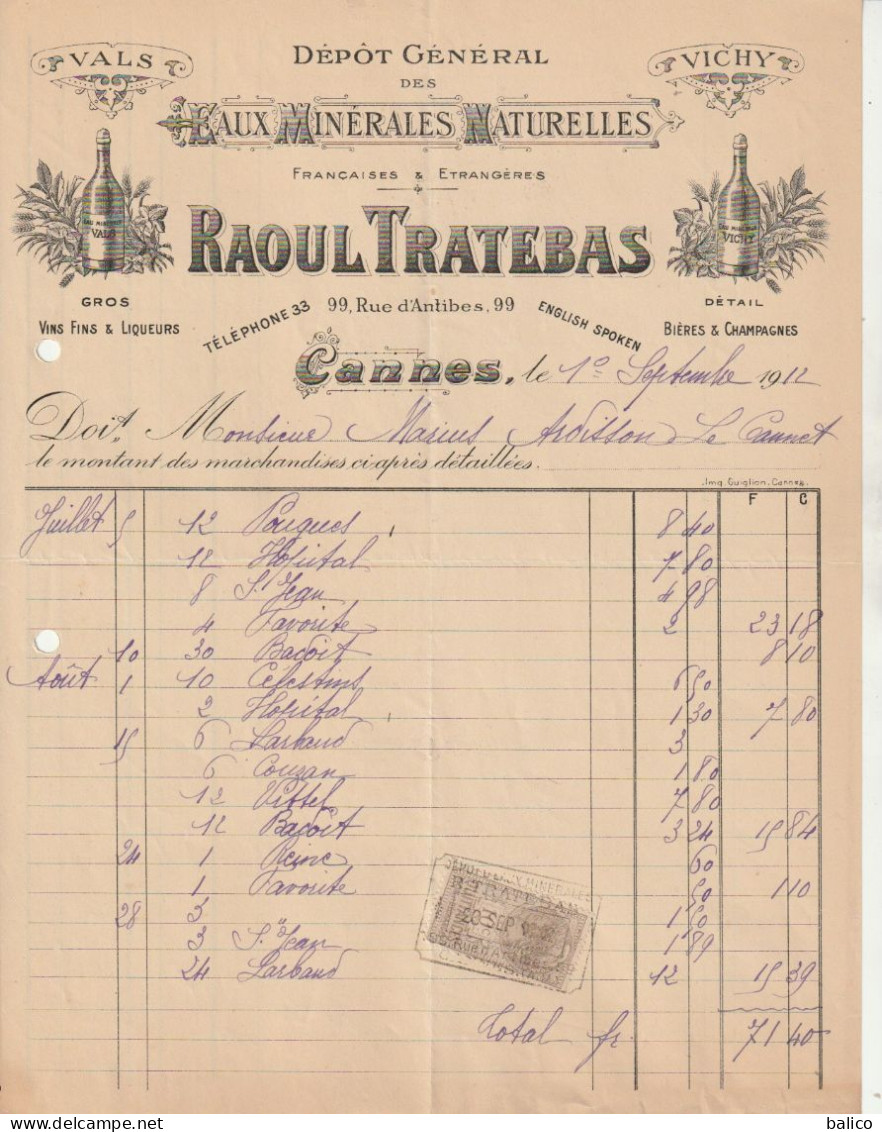 VALS
DÉPÔT GÉNÉRAL
VICHY
DES
EAUX MINÉRALES NATURELLES
FRANÇAISES & ETRANGÈRES
EAU MINÉRALE
VALS
EAU MINÉRALE
VICHY
RAOUL TRATEBAS
GROS
VINS FINS & LIQUEURS
TÉLÉPHONE 33
99, Rue d'Antibes, 99
ENGLISH SPOKEN
DÉTAIL
BIÈRES & CHAMPAGNES
Cannes, le 1º Septembre 1912
Doit Monsieur Marius Ardisson Le Cannet
le montant des marchandises ci-après détaillées.
Imq. Guiglion, Cannes.
F C
Juillet 5 12 Pougues 8 40
12 Hôpital 7 80
8 St Jean 4 98
4 Favorite 2 23 18
10 30 Badoit 8 10
Août 1 10 Célestins 6 50
2 Hôpital 1 30 7 80
15 6 Larbaud 3
6 Couzan 1 80
12 Vittel 7 80
12 Badoit 3 24 15 84
24 1 Reine 60
1 Favorite 50 1 10
28 3 " 1 50
3 St Jean 1 89
24 Larbaud 12 15 39
DÉPÔT D'EAUX MINÉRALES
R. TRATEBAS
20 SEP
99, Rue d'Antibes, 99
Total fr. 71 40
balico